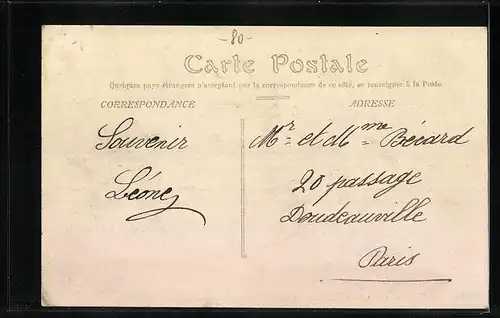 80-
Carte Postale
Quelques pays étrangers n'acceptant pas la correspondance de ce côté, se renseigner à la Poste.
CORRESPONDANCE
ADRESSE
Souvenir
Léone
Mr et Mme Bécard
20 passage
Doudeauville
Paris